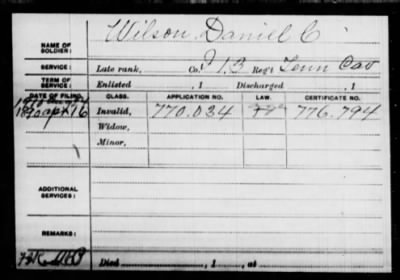 Wilson, Daniel C
NAME OF SOLDIER:
SERVICE: Late rank, Co. 13 Reg't Tenn Cav
TERM OF SERVICE: Enlisted , 1 Discharged , 1
DATE OF FILING. CLASS. APPLICATION NO. LAW. CERTIFICATE NO.
1890 16 Invalid, 770.034 776.794
Widow,
Minor,
ADDITIONAL SERVICES:
REMARKS:
Died , 1 , at